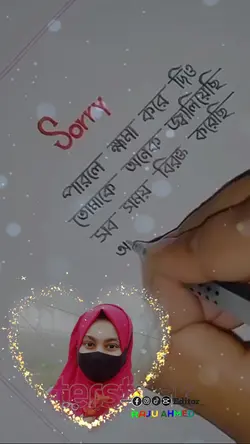 Sorry
পারলে ক্ষমা করে দিও
তোমাকে অনেক জ্বালিয়েছি
সব সময় বিরক্ত করেছি
Editor
RAJU AHMED